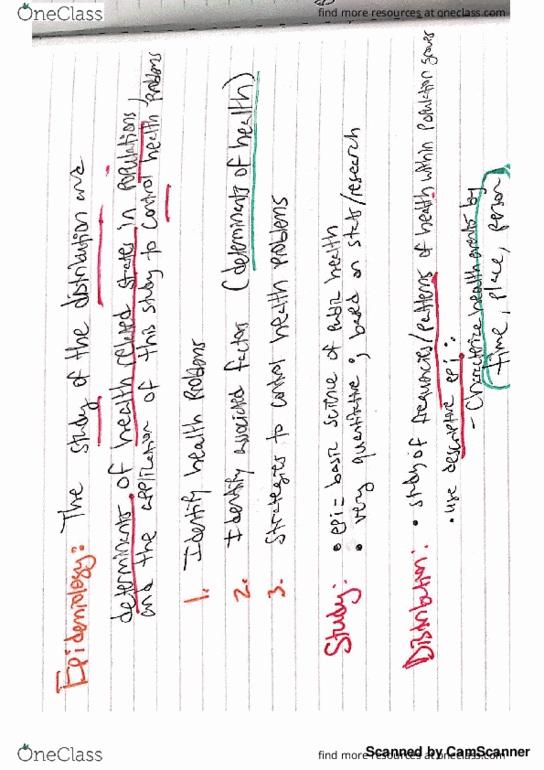 OneClass
find more resources at oneclass.com
Epidemiology: The study of the distribution and
determinants of health related states in populations,
and the application of this study to control health problems
1. Identify health problems
2. Identify associated factors (determinants of health)
3. Strategies to control health problems
Study: • epi = basic science of public health
• very quantitative; based on stats/research
Distribution: • study of frequencies/patterns of health within population groups
• use descriptive epi:
- Characterize health events by
time, place, person
OneClass
find more resources at oneclass.com
Scanned by CamScanner